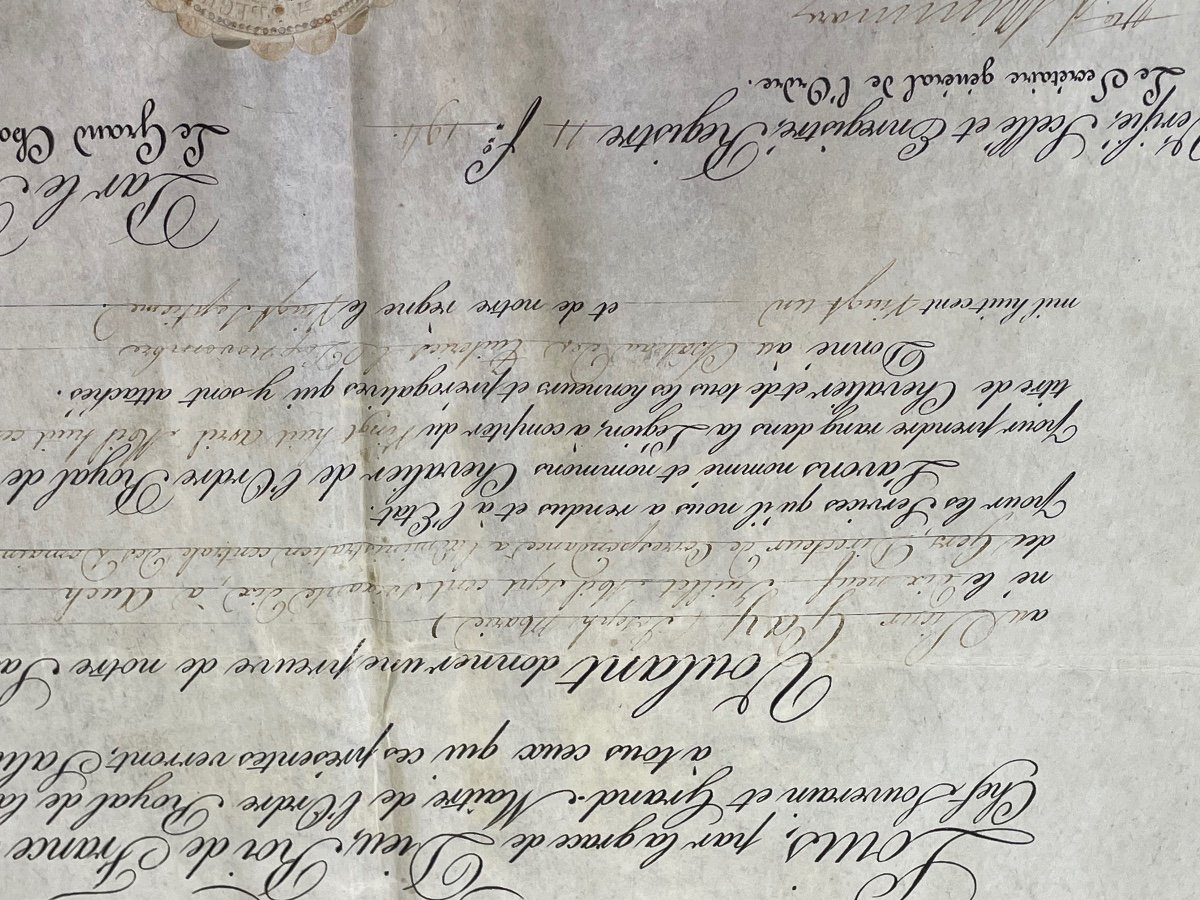 Louis, par la grace de Dieu, Roi de France
Chef Souverain et Grand-Maître de l'Ordre Royal de la
à tous ceux qui ces présentes verront, Salu
Voulant donner une preuve de notre Sa
au Sieur Joseph Marie
né le dix neuf Juillet Mil sept cent soixante dix à Auch
du Gers, Directeur de Correspondance à l'administration centrale des Domain
pour les Services qu'il nous a rendus et à l'Etat.
L'avons nommé et nommons Chevalier de l'Ordre Royal de
pour prendre rang dans la Légion, à compter du Vingt huit Avril Mil huit ce
titre de Chevalier et de tous les honneurs et prérogatives qui y sont attachés.
Donné au Château des Tuileries le novembre
mil huit cent Vingt un et de notre règne le Vingt Septième.
Par le
Le Grand Cha
Vérifié, Scellé et Enregistré, Registre 11 f.o
Le Secrétaire général de l'Ordre.